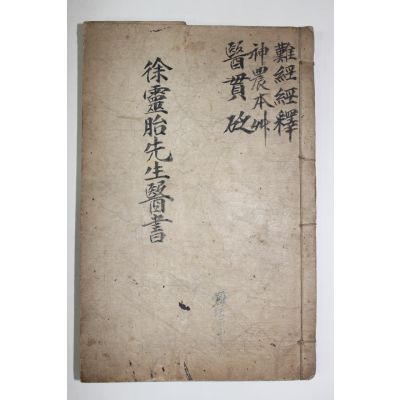 難經經釋
神農本艸
醫貫砭
徐靈胎先生醫書